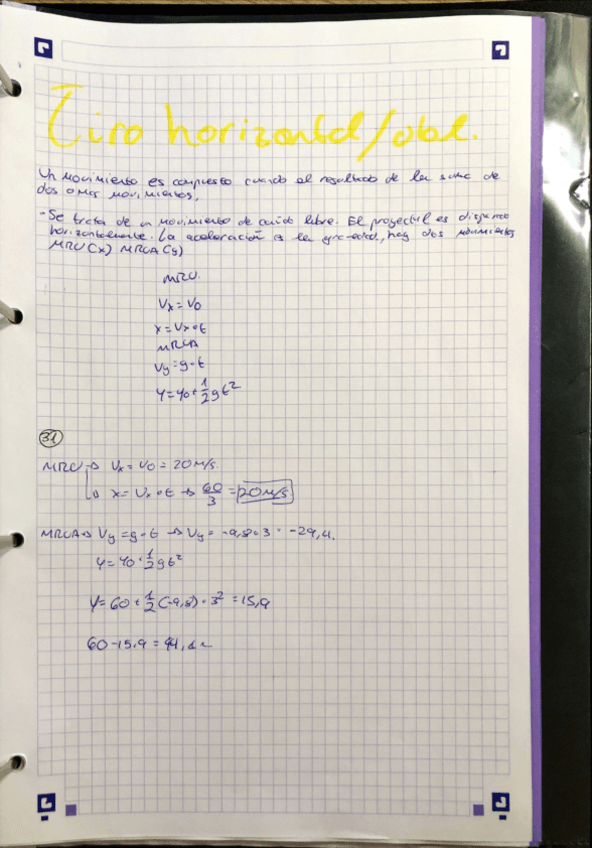 Tiro horizontal/obl.
Un movimiento es compuesto cuando el resultado de la suma de
dos o mas movimientos,
- Se trata de un movimiento de caída libre. El proyectil es disparado
horizontalmente. La aceleración es la gravedad, hay dos movimientos
MRU(x) MRUA(y)
MRU.
Vx = V0
x = Vx · t
MRUA
Vy = g · t
Y = Y0 + 1/2 g t²
31
MRU → Vx = V0 = 20 m/s.
↳ x = Vx · t → 60/3 = 20 m/s
MRUA → Vy = g · t → Vy = -9,8 · 3 = -29,4.
Y = Y0 + 1/2 g t²
Y = 60 + 1/2 (-9,8) · 3² = 15,9
60 - 15,9 = 44,1